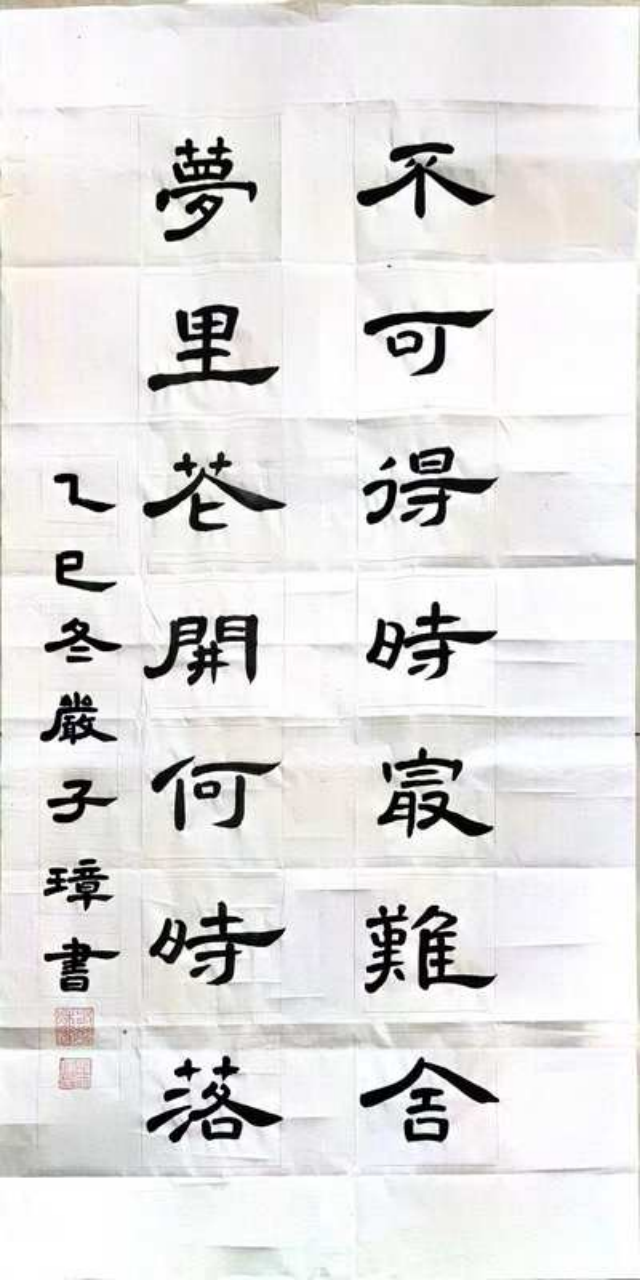 不可得時㝡難舍
夢里花開何時落
乙巳冬嚴子璋書